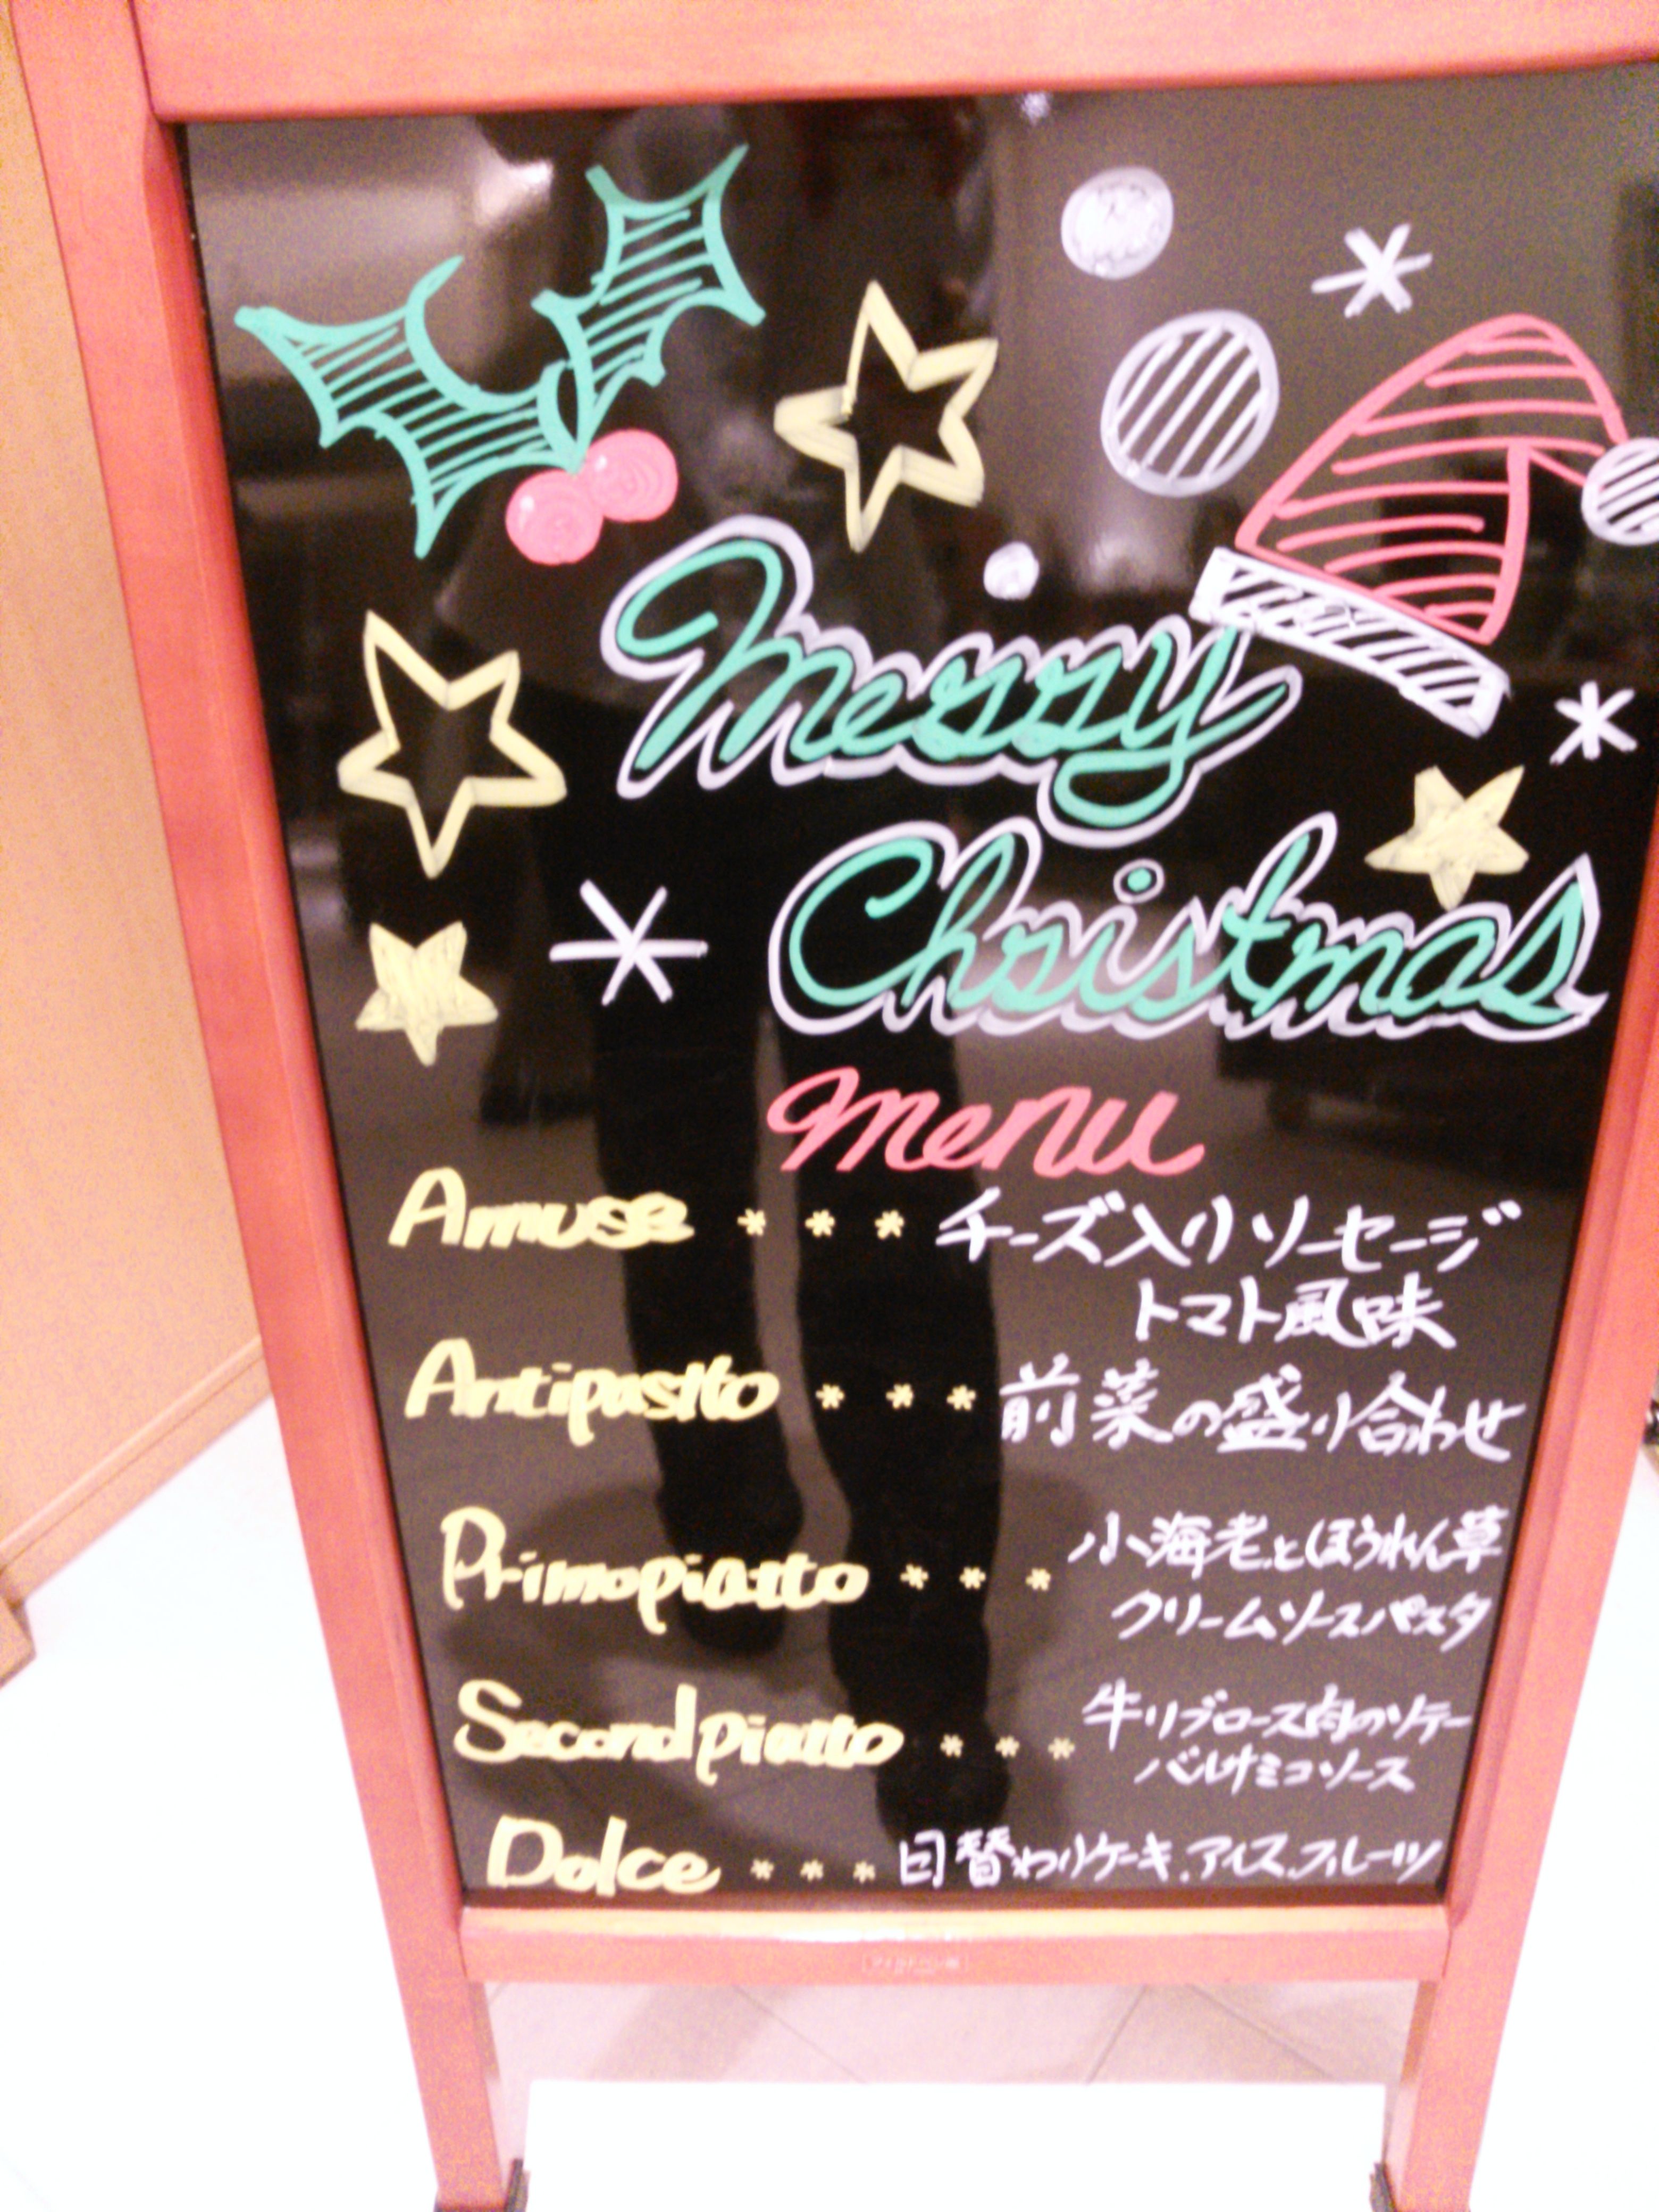 Merry
Christmas
menu
Amuse * * * チーズ入りソーセージ
トマト風味
Antipastto * * * 前菜の盛り合わせ
Primopiatto * * * 小海老とほうれん草
クリームソースパスタ
Secondpiatto * * * 牛リブロース肉のソテー
バルサミコソース
Dolce * * * 日替わりケーキ.アイス.フルーツ